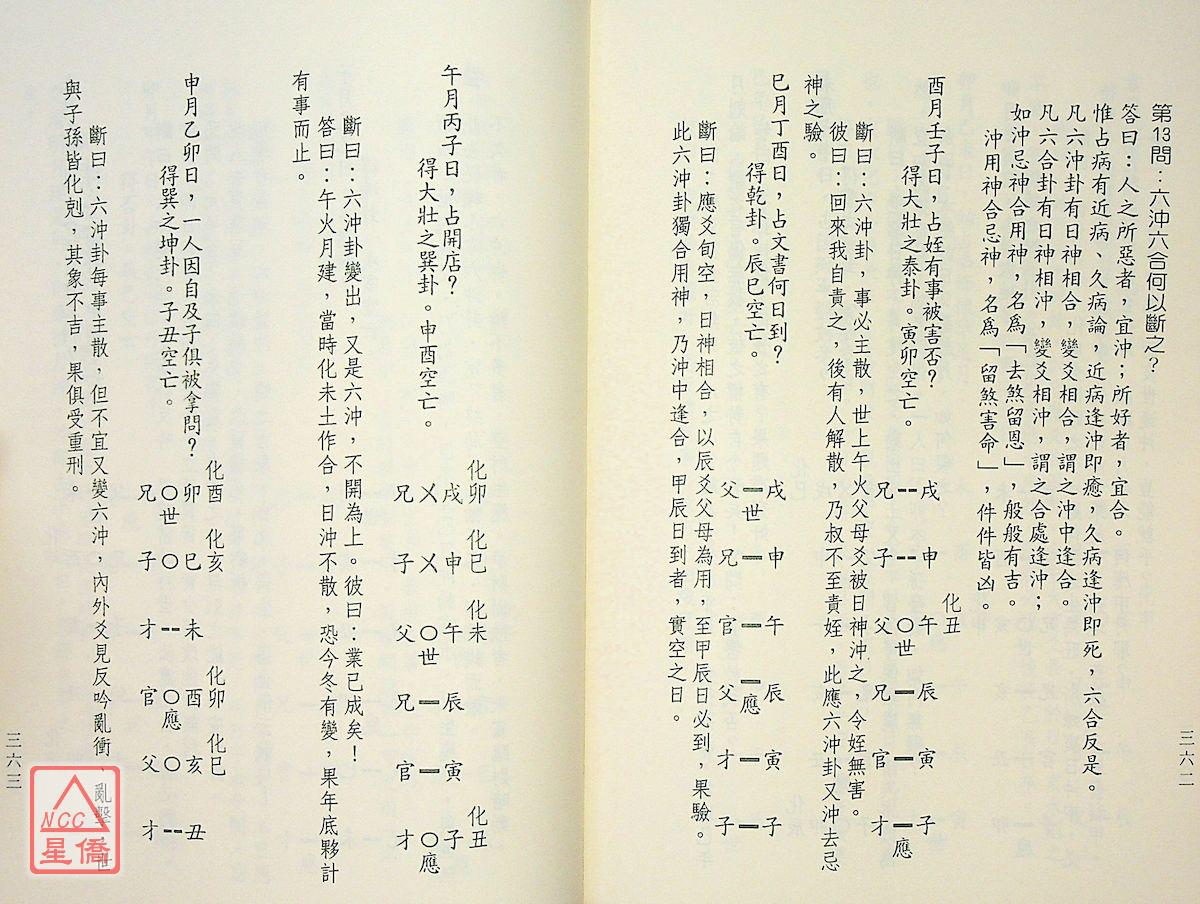 第13問：六沖六合何以斷之？
答曰：人之所惡者，宜沖；所好者，宜合。
惟占病有近病、久病論，近病逢沖即癒，久病逢沖即死，六合反是。
凡六沖卦有日神相合，變爻相合，謂之沖中逢合。
凡六合卦有日神相沖，變爻相沖，謂之合處逢沖；
如沖忌神合用神，名爲「去煞留恩」，般般有吉。
沖用神合忌神，名爲「留煞害命」，件件皆凶。
酉月壬子日，占姪有事被害否？
得大壯之泰卦。寅卯空亡。
化丑
戌 申 午 辰 寅 子
兄 子 父世 兄 官 才應
斷曰：六沖卦，事必主散，世上午火父母爻被日神沖之，令姪無害。
彼曰：回來我自責之，後有人解散，乃叔不至責姪，此應六沖卦又沖去忌
神之驗。
巳月丁酉日，占文書何日到？
得乾卦。辰巳空亡。
戌 申 午 辰 寅 子
父世 兄 官 父應 才 子
斷曰：應爻旬空，日神相合，以辰爻父母為用，至甲辰日必到，果驗。
此六沖卦獨合用神，乃沖中逢合，甲辰日到者，實空之日。
三六二
午月丙子日，占開店？
得大壯之巽卦。申酉空亡。
化卯 化巳 化未 化丑
戌 申 午 辰 寅 子
兄 子 父世 兄 官 才應
斷曰：六沖卦變出，又是六沖，不開為上。彼曰：業已成矣！
答曰：午火月建，當時化未土作合，日沖不散，恐今冬有變，果年底夥計
有事而止。
申月乙卯日，一人因自及子俱被拿問？
得巽之坤卦。子丑空亡。
化酉 化亥 化卯 化巳
卯 巳 未 酉 亥 丑
兄世 子 才 官應 父 才
斷曰：六沖卦每事主散，但不宜又變六沖，內外爻見反吟亂衝、亂擊、世
與子孫皆化剋，其象不吉，果俱受重刑。
三六三
NCC
星僑